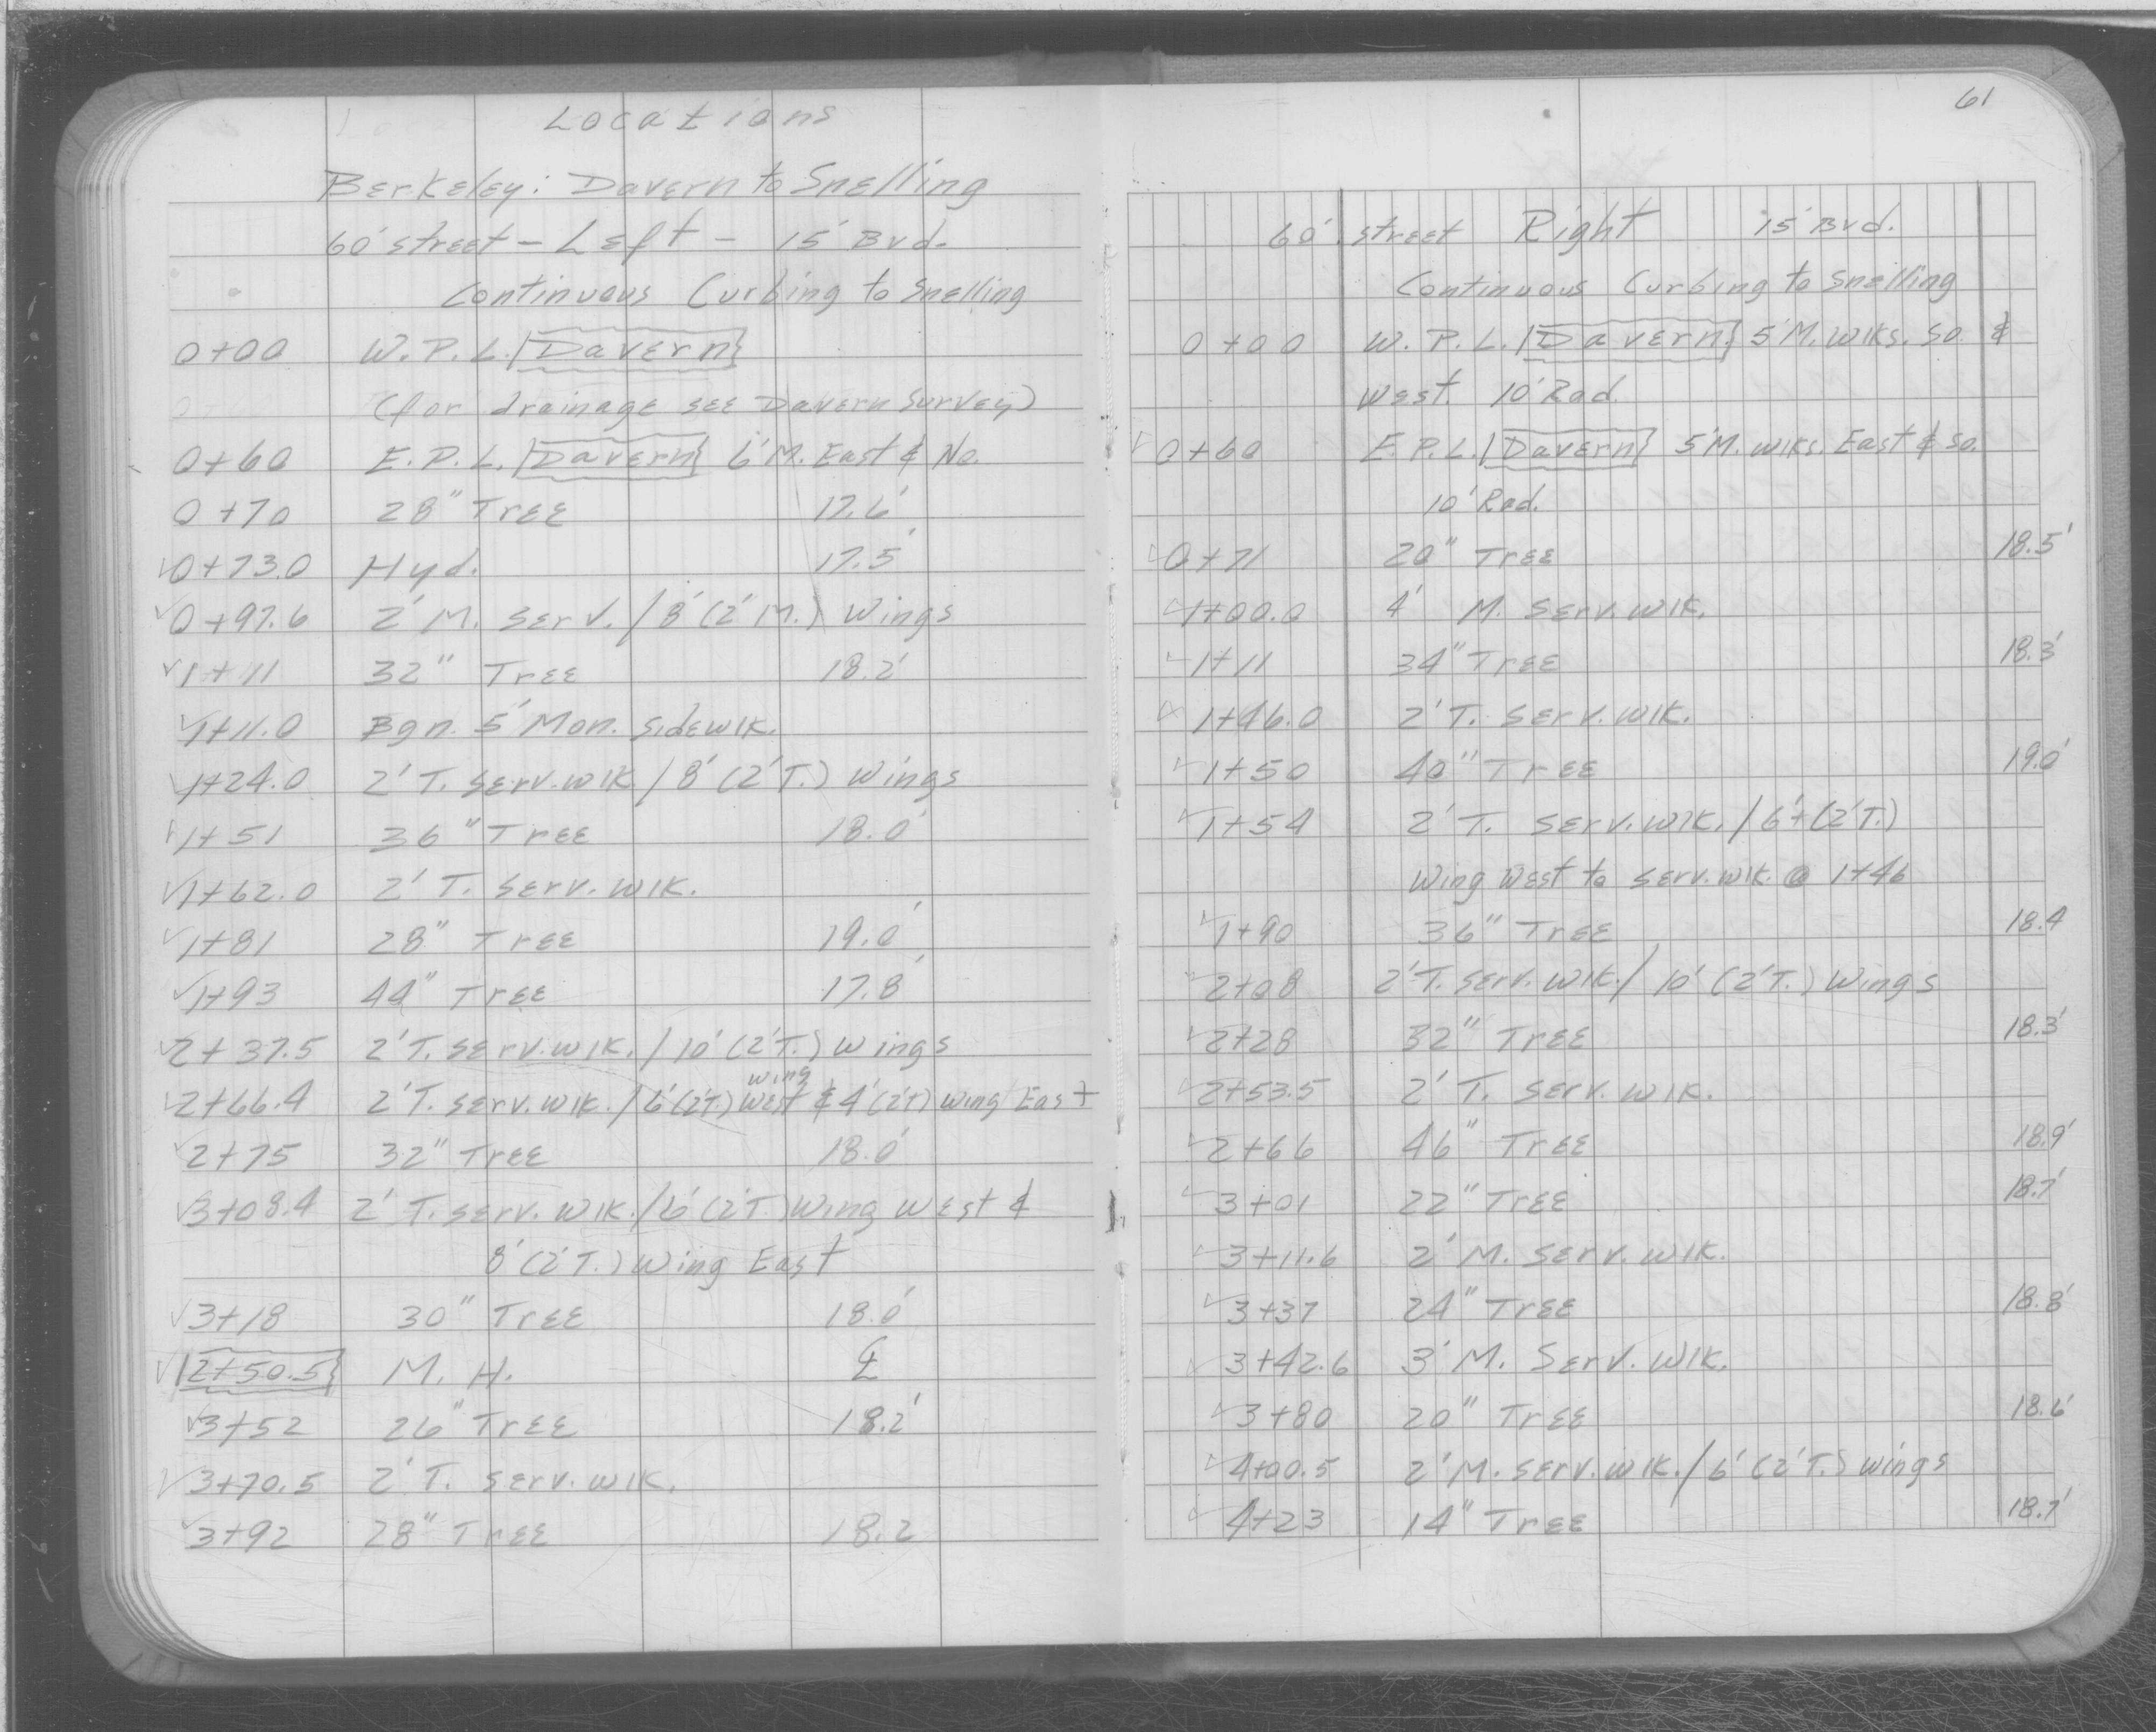 Locations
Berkeley: Davern to Snelling
60' street - Left - 15' Bvd.
Continuous Curbing to Snelling
0+00 W.P.L. Davern
(for drainage see Davern Survey)
0+60 E.P.L. Davern 6' M. East & No.
0+70 28" Tree 17.6'
0+73.0 Hyd. 17.5'
0+97.6 2' M. Serv. / 8' (2' M.) Wings
1+11 32" Tree 18.2'
1+11.0 Bgn. 5' Mon. Sidewlk.
1+24.0 2' T. Serv. wlk. / 8' (2' T.) Wings
1+51 36" Tree 18.0'
1+62.0 2' T. Serv. wlk.
1+81 28" Tree 19.0'
1+93 44" Tree 17.8'
2+37.5 2' T. Serv. wlk. / 10' (2' T.) wings
2+66.4 2' T. Serv. wlk. / 6' (2' T.) wing West & 4' (2' T) wing East
2+75 32" Tree 18.0'
3+08.4 2' T. Serv. wlk. / 6' (2' T.) wing West &
8' (2' T.) wing East
3+18 30" Tree 18.0'
2+50.5 M. H. ℄
3+52 26" Tree 18.2'
3+70.5 2' T. Serv. wlk.
3+92 28" Tree 18.2
61
60' street Right 15' Bvd.
Continuous Curbing to Snelling
0+00 W.P.L. Davern 5' M. Wlks. So. &
West. 10' Rad.
0+60 E.P.L. Davern 5' M. wlks. East & So.
10' Rad.
0+71 20" Tree 18.5'
1+00.0 4' M. Serv. wlk.
1+11 34" Tree 18.3'
1+46.0 2' T. Serv. wlk.
1+50 40" Tree 19.0'
1+54 2' T. Serv. wlk. / 6'± (2' T.)
Wing West to Serv. wlk. @ 1+46
1+90 36" Tree 18.4
2+08 2' T. Serv. wlk. / 10' (2' T.) Wings
2+28 32" Tree 18.3'
2+53.5 2' T. Serv. wlk.
2+66 46" Tree 18.9'
3+01 22" Tree 18.7'
3+11.6 2' M. Serv. wlk.
3+37 24" Tree 18.8'
3+42.6 3' M. Serv. Wlk.
3+80 20" Tree 18.6'
4+00.5 2' M. Serv. wlk. / 6' (2' T.) wings
4+23 14" Tree 18.7'